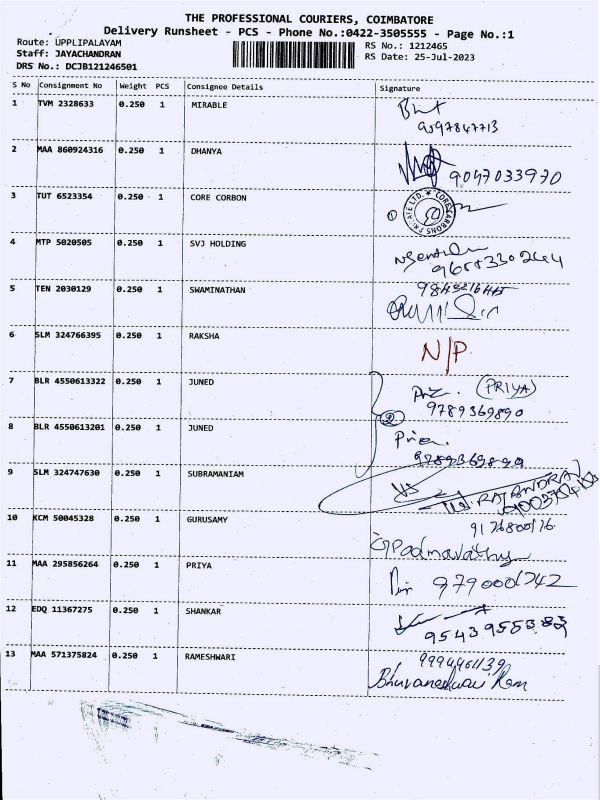 THE PROFESSIONAL COURIERS, COIMBATORE
Delivery Runsheet - PCS - Phone No.:0422-3505555 - Page No.:1
Route: UPPLIPALAYAM
RS No.: 1212465
Staff: JAYACHANDRAN
RS Date: 25-Jul-2023
DRS No.: DCJB121246501
S No Consignment No Weight PCS Consignee Details Signature
1 TVM 2328633 0.250 1 MIRABLE
2 MAA 860924316 0.250 1 DHANYA
9047033970
3 TUT 6523354 0.250 1 CORE CORBON
4 MTP 5020505 0.250 1 SVJ HOLDING
5 TEN 2030129 0.250 1 SWAMINATHAN
6 SLM 324766395 0.250 1 RAKSHA
N/P
7 BLR 4550613322 0.250 1 JUNED
(PRIYA)
9789369890
2
8 BLR 4550613201 0.250 1 JUNED
9789369890
9 SLM 324747630 0.250 1 SUBRAMANIAM
10 KCM 50045328 0.250 1 GURUSAMY
GPadmavathy
11 MAA 295856264 0.250 1 PRIYA
12 EDQ 11367275 0.250 1 SHANKAR
13 MAA 571375824 0.250 1 RAMESHWARI
Bhuvaneshwari Ram